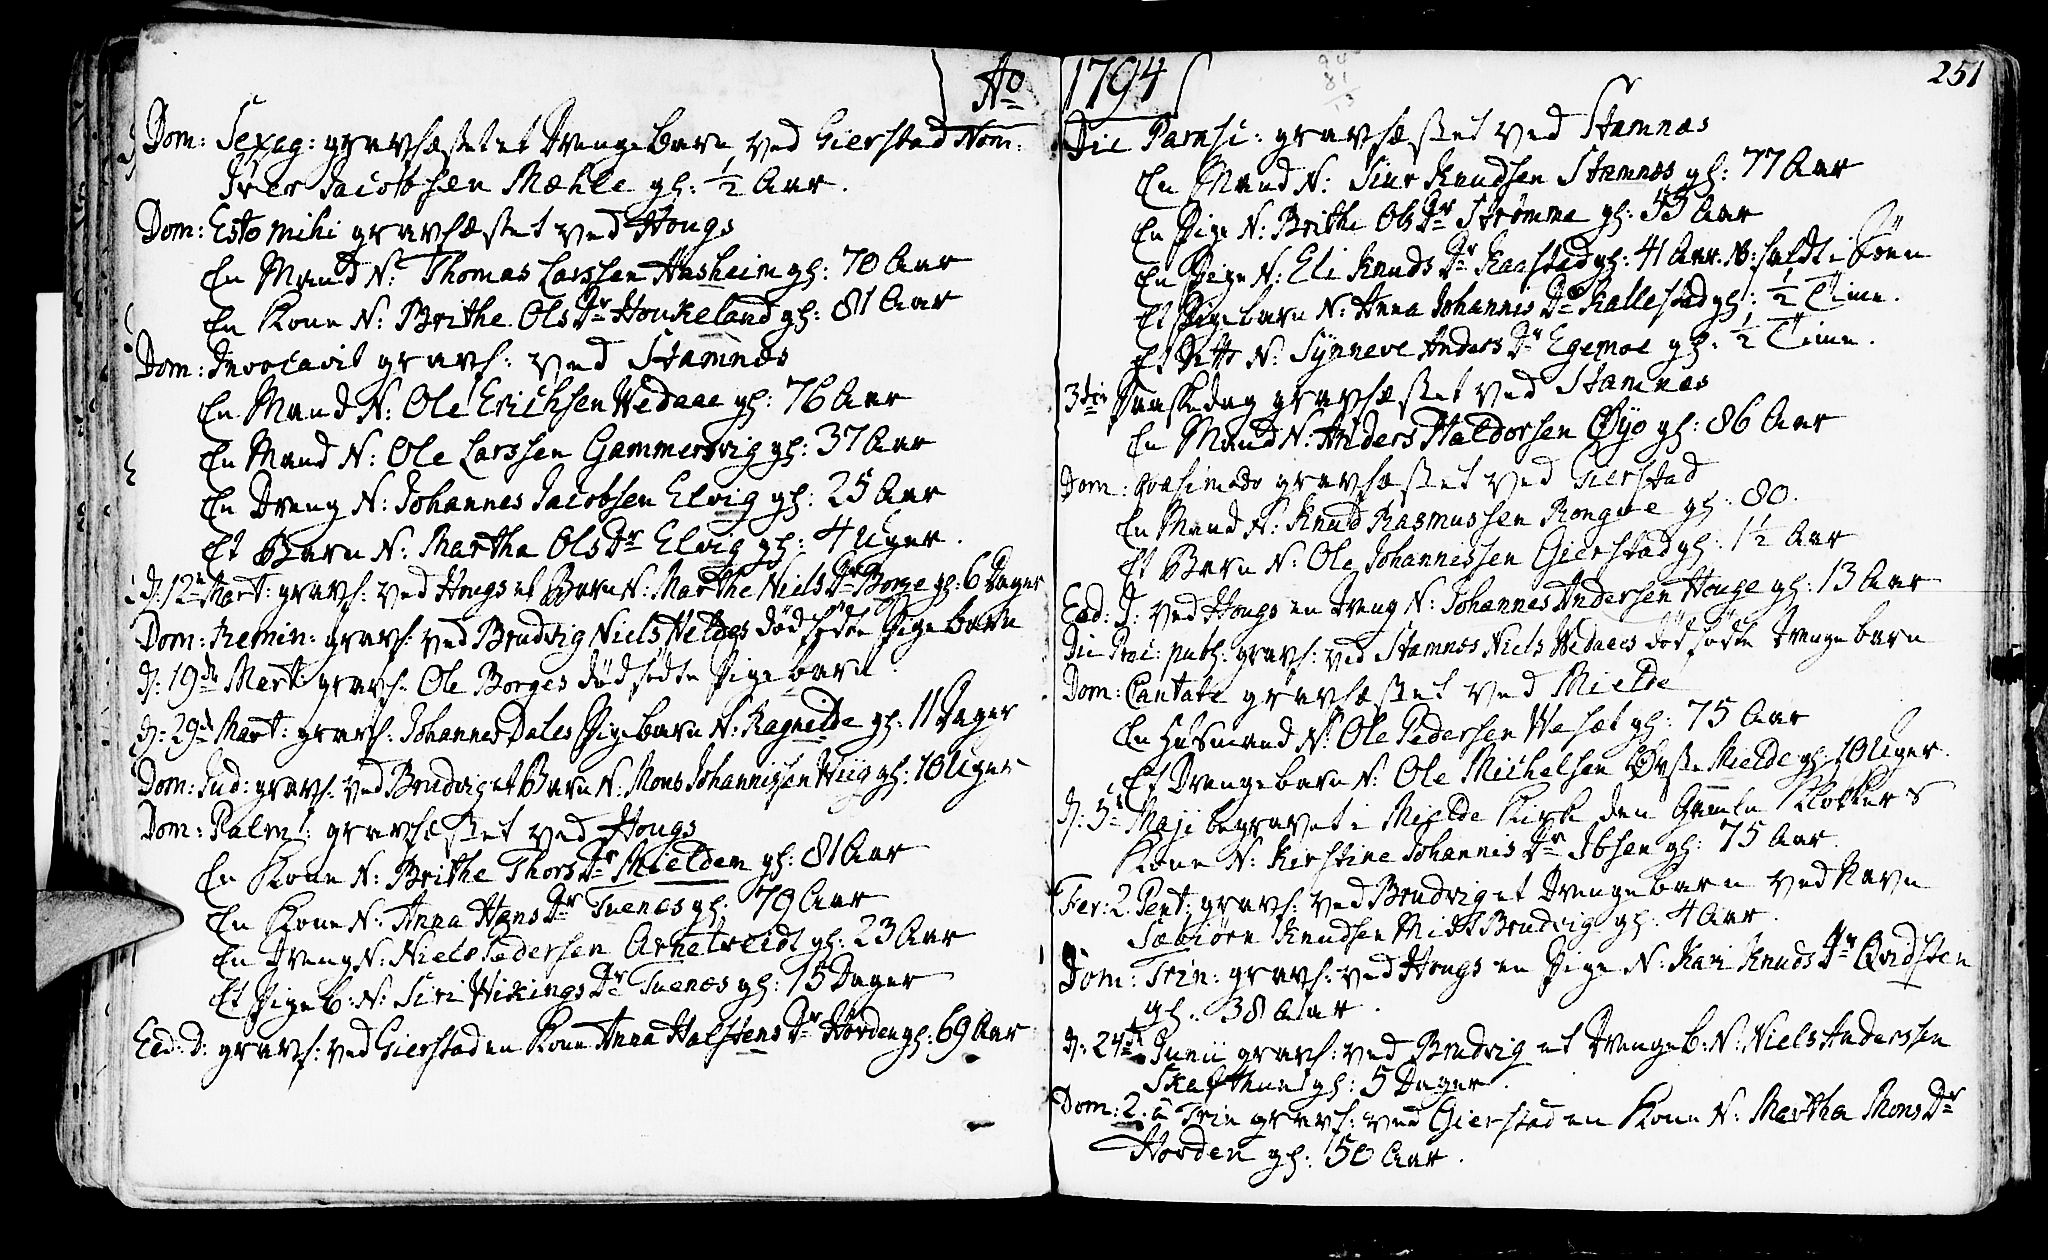 Ao
Dom: Sexag: gravfæstet et Drengebarn ved Gierstad Nom:
Iver Jacobsen Mæhle gl: ½ Aar.
Dom: Esto mihi gravfæstet ved Hougs
En Mand N: Thomas Larssen Aasheim gl: 70 Aar
En Kone N: Brithe Ols Dr Houkeland gl: 81 Aar
Dom: Invocavit gravf: ved Stamnæs
En Mand N: Ole Erichsen Wedaae gl: 76 Aar
En Mand N: Ole Larssen Gammersvig gl: 37 Aar
En Dreng N: Johannes Jacobsen Elvig gl: 25 Aar
Et Barn N: Martha Ols Dr Elvig gl: 4 Uger.
D: 12te Mart: gravf: ved Hougs et Barn N: Marthe Niels Dr Borge gl: 6 Dager
Dom: Remin: gravf: ved Brudvig Niels Veldes dødfødte Pigebarn
D: 19de Mart: gravf: Ole Borges dødfødte Pigebarn
D: 29de Mart: gravf: Johannes Dales Pigebarn N: Ragnilde gl: 11 Dager
Dom: Jud: gravf: ved Brudvig et Barn N: Mons Johannissen Wiig gl: 10 Uger
Dom: Palm: gravfæstet ved Hougs
En Kone N: Brithe Thors Dr Mieldem gl: 81 Aar
En Kone N: Anna Hans Dr Tuenæs gl: 79 Aar
En Dreng N: Niels Pedersen Arnetveidt gl: 23 Aar
Et Pigeb: N: Siri Wikings Dr Tuenæs gl: 15 Dager
Eod: D: gravf: ved Gierstad en Kone Anna Halstens Dr Hørden gl: 69 Aar
1794
94
81
13
251
Die Parasc: gravfæstet ved Stamnæs
En Mand N: Siur Knudsen Stamnæs gl: 77 Aar
En Pige N: Brithe Ols Dr Strømme gl: 55 Aar
En Pige N: Eli Knuds Dr Raastad gl: 41 Aar. NB: faldt i Søen
Et Pigebarn N: Anna Johannis Dr Kallestad gl: ½ Time.
Et Ditto N: Synneve Anders Dr Egemoe gl: ½ Time.
3die Paaskedag gravfæstet ved Stamnæs
En Mand N: Anders Haldorsen Øyo gl: 86 Aar
Dom: Qvasimodo gravfæstet ved Gierstad
En Mand N: Knud Rasmussen Rongve gl: 80.
Et Barn N: Ole Johannissen Gierstad gl: 1½ Aar
Eod: D: ved Hougs en Dreng N: Johannes Andersen Houge gl: 13 Aar
Die Prec: publ: gravf: ved Stamnæs Niels Wedaaes dødfødte Drengebarn
Dom: Cantate gravfæstet ved Mielde
En Huusmand N: Ole Pedersen Wasæt gl: 75 Aar
Et Drengebarn N: Ole Michelsen Øvste Mielde gl: 10 Uger.
D: 5te Maji begravet i Mielde Kirke den Gamle Klokkers
Kone N: Kirstine Johannis Dr Ibsen gl: 75 Aar.
Fer: 2. Pent: gravf: ved Brudvig et Drengebarn ved Navn
Sæbiørn Knudsen Midt Brudvig gl: 4 Aar.
Dom: Trin: gravf: ved Hougs en Pige N: Kari Knuds Dr Qvidsten
gl: 38 Aar.
D: 24de Junii gravf: ved Brudvig et Drengeb: N: Niels Anderssen
Skafthun gl: 5 Dager.
Dom: 2. a Trin gravf: ved Gierstad en Kone N: Martha Mons Dr
Horden gl: 50 Aar.